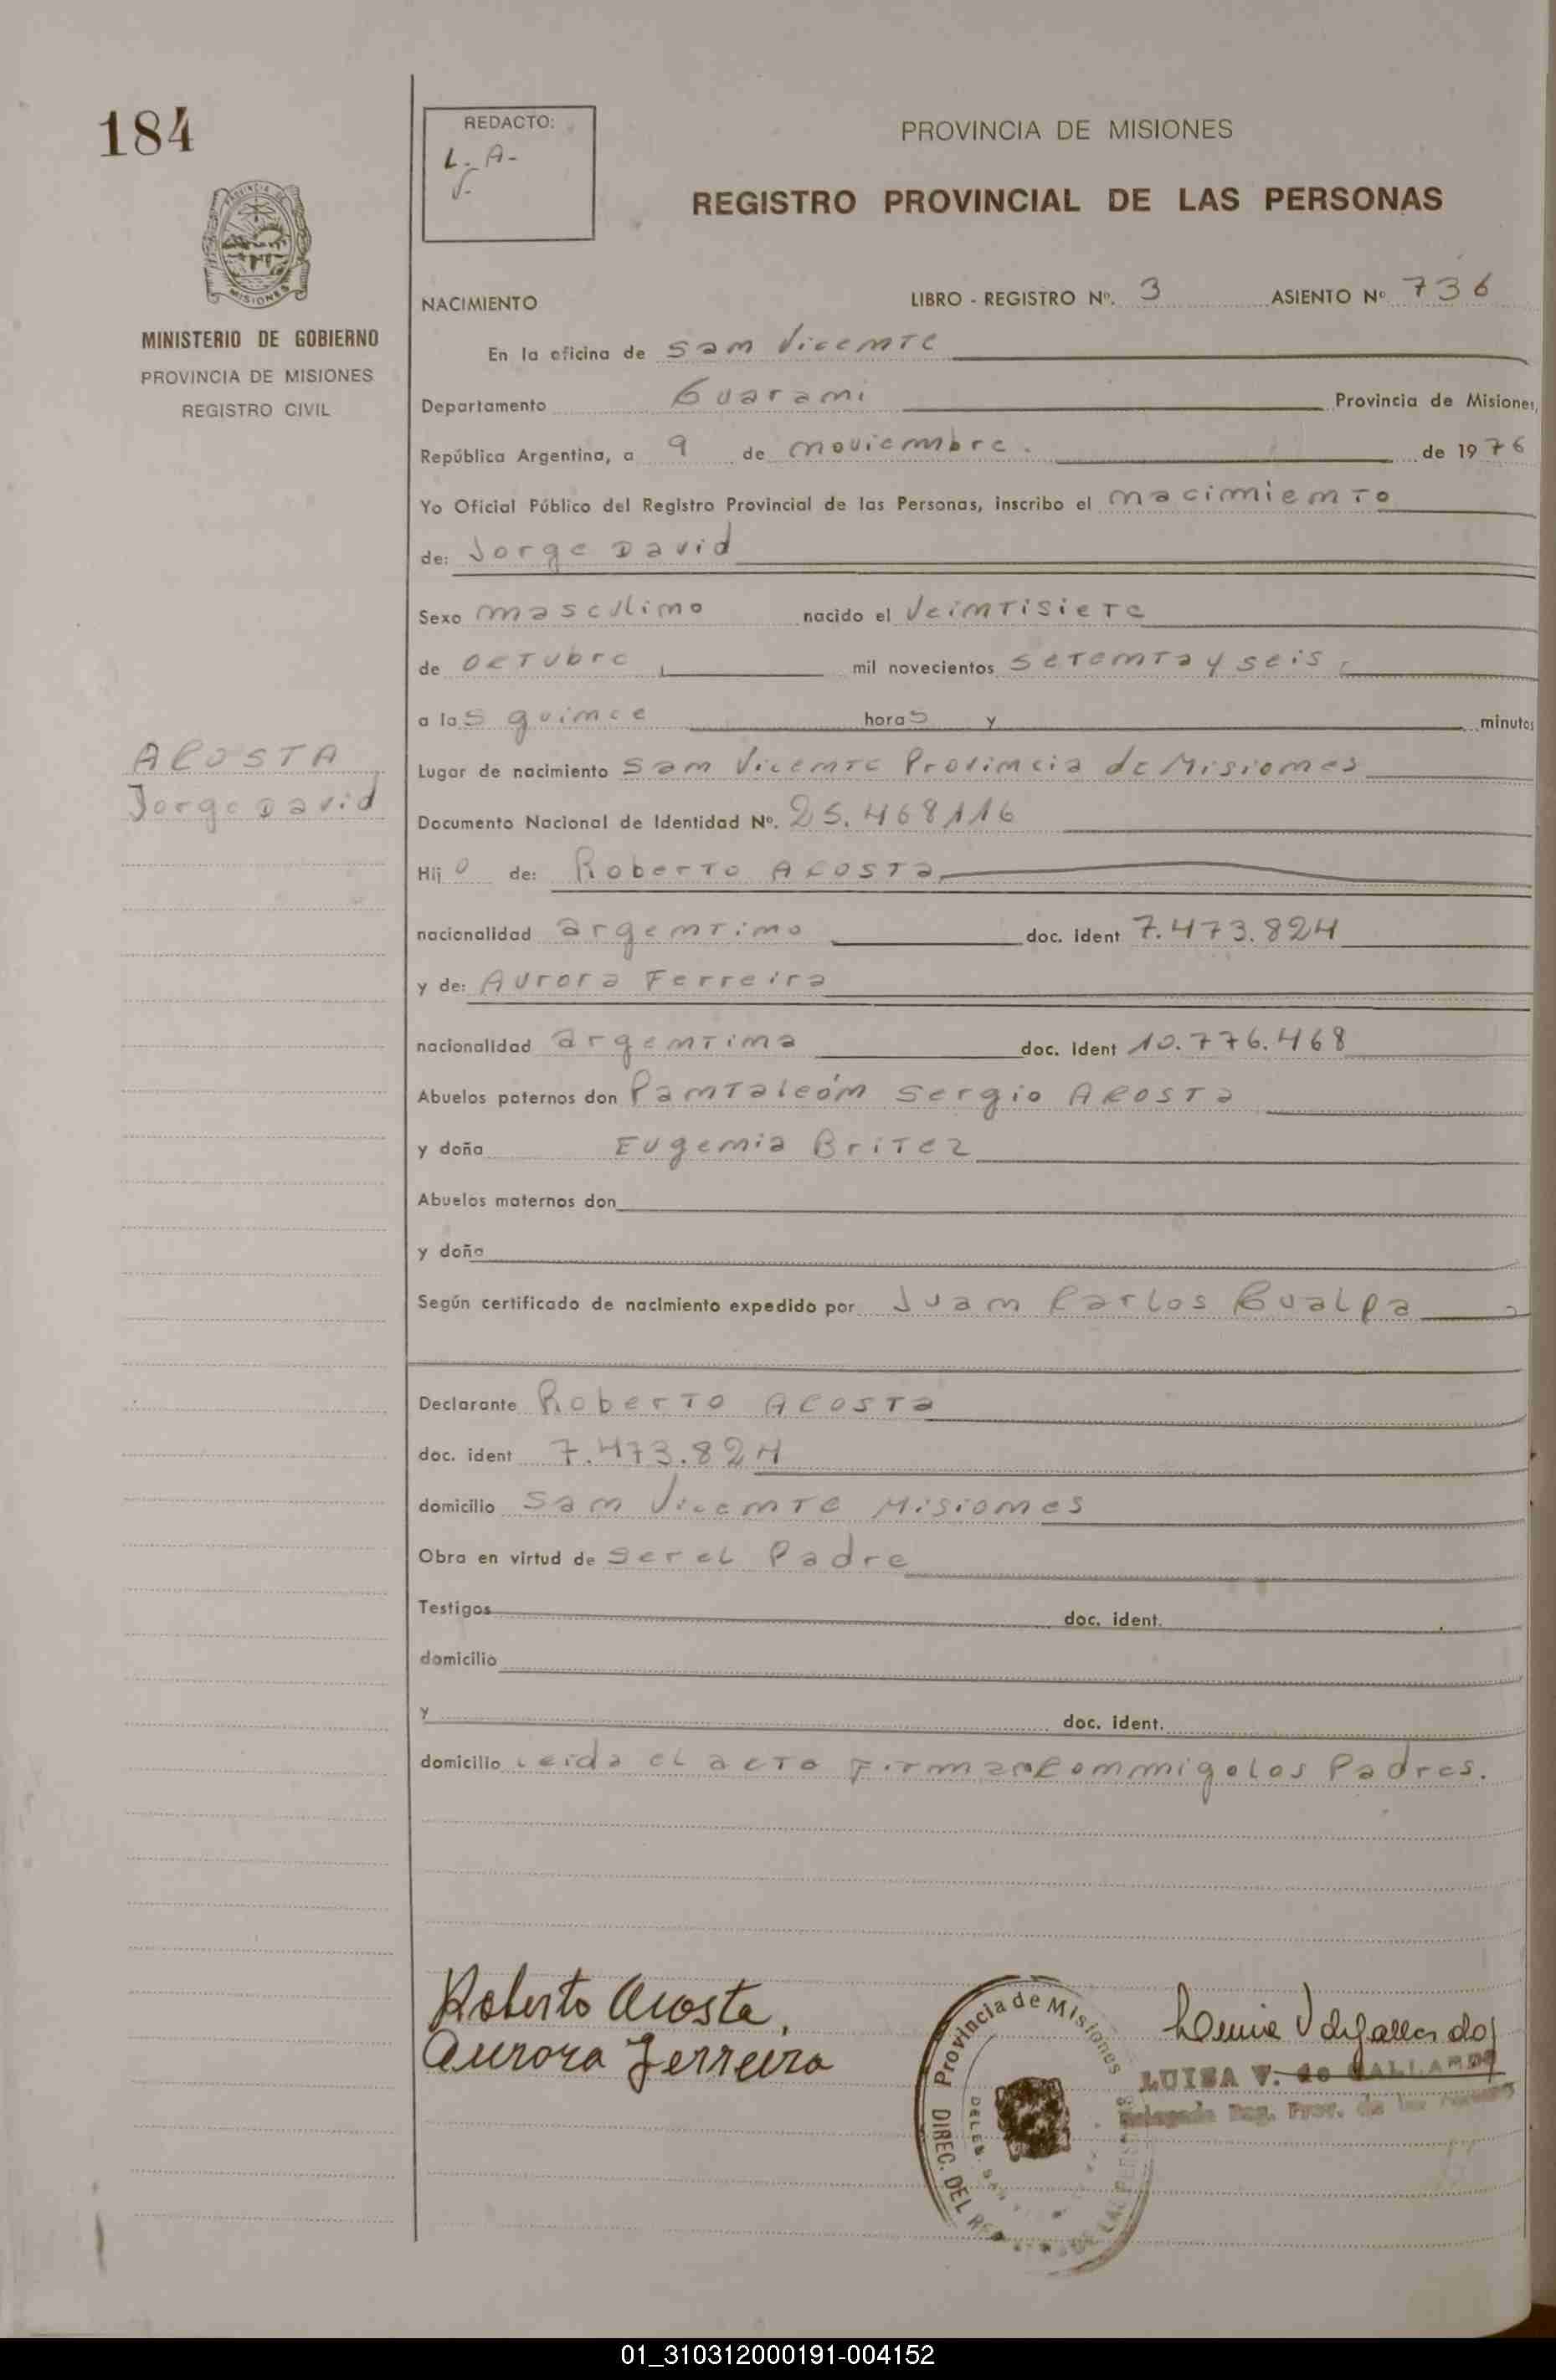 184
REDACTO:
L. A.
PROVINCIA DE MISIONES
REGISTRO PROVINCIAL DE LAS PERSONAS
MISIONES
MINISTERIO DE GOBIERNO
PROVINCIA DE MISIONES
REGISTRO CIVIL
NACIMIENTO LIBRO - REGISTRO Nº. 3 ASIENTO Nº 736
En la oficina de San Vicente
Departamento Guarani Provincia de Misiones,
República Argentina, a 9 de noviembre. de 1976
Yo Oficial Público del Registro Provincial de las Personas, inscribo el nacimiento
de: Jorge David
Sexo masculino nacido el veintisiete
de octubre, mil novecientos setenta y seis,
a las quince horas y minutos
ACOSTA
Jorge David
Lugar de nacimiento San Vicente Provincia de Misiones
Documento Nacional de Identidad Nº. 25.468116
Hijo de: Roberto Acosta,
nacionalidad argentino doc. ident 7.473.824
y de: Aurora Ferreira
nacionalidad argentina doc. ident 10.776.468
Abuelos paternos don Pantaleón Sergio Acosta
y doña Eugenia Britez
Abuelos maternos don
y doña
Según certificado de nacimiento expedido por Juan Carlos Gualpa
Declarante Roberto Acosta
doc. ident 7.473.824
domicilio San Vicente Misiones
Obra en virtud de ser el Padre
Testigos doc. ident.
domicilio
y doc. ident.
domicilio Leida el acto firman conmigo los Padres.
Roberto Acosta,
Aurora Ferreira
Provincia de Misiones
DIREC. DEL REG
DE LAS PERS
LUISA V. de GALLARDO
Delegada Reg. Prov. de las
01_310312000191-004152